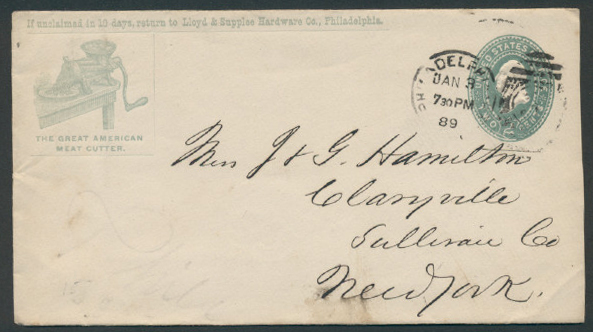 If unclaimed in 10 days, return to Lloyd & Supplee Hardware Co., Philadelphia.
THE GREAT AMERICAN
MEAT CUTTER.
DELPH
JAN 9
730PM
89
UNITED STATES
TWO
J & G. Hamilton
Claryville
Sullivan Co
New York.